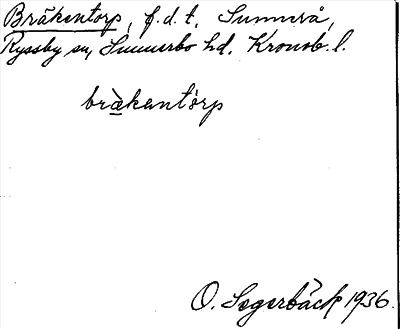 Bräkentorp, f.d.t. Sunnerå,
Ryssby sn, Sunnerbo hd. Kronob. l.
bræ̀kantôrp
O. Segerbäck 1936.